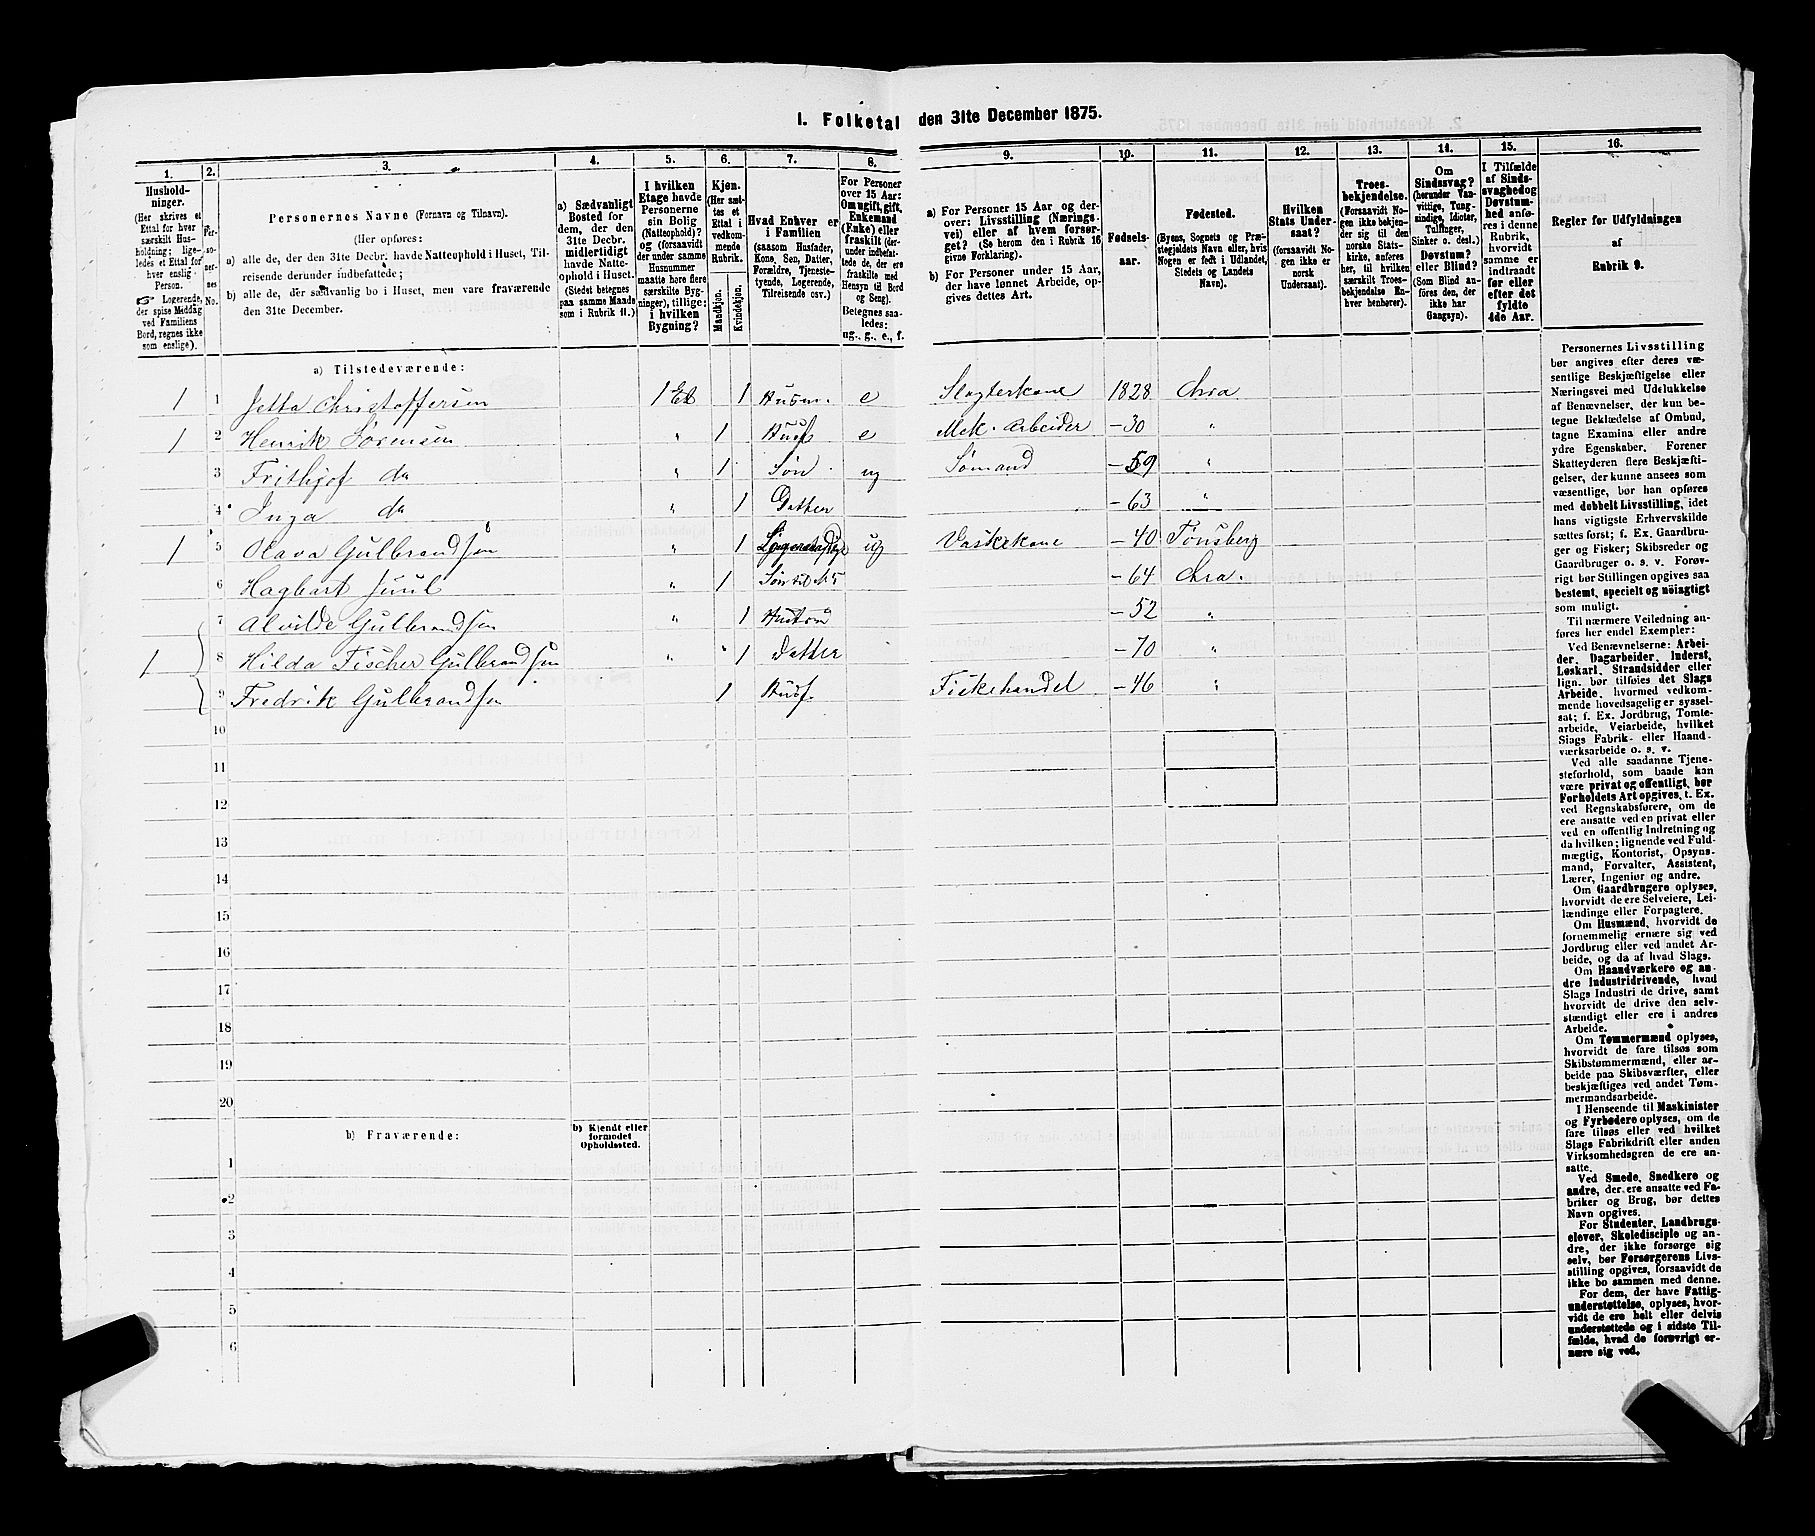 1. Folketal den 31te December 1875.
1.
2.
3.
4.
5.
6.
7.
8.
9.
10.
11.
12.
13.
14.
15.
16.
Hushold-
ninger.
(Her skrives et
Ettal for hver
særskilt Hus-
holdning; lige-
ledes et Ettal for
hver enslig
Person.
☞ Logerende,
der spise Middag
ved Familiens
Bord, regnes ikke
som enslige).
Per-
so-
ner-
nes
No.
Personernes Navne (Fornavn og Tilnavn).
(Her opføres:
a) alle de, der den 31te Decbr. havde Natteophold i Huset, Til-
reisende derunder indbefattede;
b) alle de, der sædvanlig bo i Huset, men vare fraværende
den 31te December.
a) Sædvanligt
Bosted for
dem, der den
31te Decbr.
midlertidigt
havde Natte-
ophold i Huset.
(Stedet betegnes
paa samme Maade
som i Rubrik 11.)
I hvilken
Etage havde
Personerne
sin Bolig
(Natteophold)?
og (forsaavidt
der under samme
Husnummer
maatte høre flere
særskilte Byg-
ninger), tillige:
i hvilken
Bygning?
Kjøn.
(Her sæt-
tes et
Ettal i
vedkom-
mende
Rubrik.
Mandkjøn.
Kvindekjøn.
Hvad Enhver er
i Familien
(saasom Husfader,
Kone, Søn, Datter,
Forældre, Tjeneste-
tyende, Logerende,
Tilreisende osv.)
For Personer
over 15 Aar:
Om ugift, gift,
Enkemand
(Enke) eller
fraskilt (der-
under indbefat-
tede de, der ere
fraskilte med
Hensyn til Bord
og Seng).
Betegnes saa-
ledes:
ug., g., e., f.
a) For Personer 15 Aar og der-
over: Livsstilling (Nærings-
vei) eller af hvem forsør-
get? (Se herom den i Rubrik 16
givne Forklaring).
b) For Personer under 15 Aar,
der have lønnet Arbeide, op-
gives dettes Art.
Fødsels-
aar.
Fødested.
(Byens, Sognets og Præ-
stegjeldets Navn eller, hvis
Nogen er født i Udlandet,
Stedets og Landets
Navn).
Hvilken
Stats Under-
saat?
(forsaavidt No-
gen ikke er
norsk
Undersaat).
Troes-
bekjendelse.
(Forsaavidt No-
gen ikke bekjen-
der sig til den
norske Stats-
kirke, anføres
her, til hvilken
særskilt Troes-
bekjendelse En-
hver henhører).
Om
Sindssvag?
(herunder Van-
vittige, Tung-
sindige, Idioter,
Tullinger,
Sinker o. desl.)
Døvstum?
eller Blind?
(Som Blind an-
føres den, der
ikke har
Gangsyn).
I Tilfælde
af Sinds-
svaghed og
Døvstum-
hed anfø-
res i denne
Rubrik,
hvorvidt
samme er
indtraadt
før eller
efter det
fyldte
4de Aar.
Regler for Udfyldningen
af
Rubrik 9.
a) Tilstedeværende:
1 1 Jetta Christoffersen 1 Et 1 Husm. e Slagterkone 1828 Chra
1 2 Henrik Sørensen " 1 Husf. e Mek. Arbeider -30 "
3 Frithjof do " 1 Søn ug Sømand -59 "
4 Inga do " 1 Datter -63 "
1 5 Olava Gulbrandsen " 1 ug Vaskekone -40 Tønsberg
6 Hagbart Juul " 1 Søn til No 5 -64 Chra.
7 Alvilde Gulbrandsen " 1 Hustru -52 "
1 8 Hilda Fischer Gulbrandsen " 1 Datter -70 "
9 Fredrik Gulbrandsen 1 Husf. Fiskehandel -46 "
10
11
12
13
14
15
16
17
18
19
20
b) Fraværende:
b) Kjendt eller
formodet
Opholdssted.
1
2
3
4
5
6
Personernes Livsstilling
bør angives efter deres væ-
sentlige Beskjæftigelse eller
Næringsvei med Udelukkelse
af Benævnelser, der kun be-
tegne Beklædelse af Ombud,
tagne Examina eller andre
ydre Egenskaber. Forener
Skatteyderen flere Beskjæfti-
gelser, der kunne ansees som
væsentlige, bør han opføres
med dobbelt Livsstilling, idet
hans vigtigste Erhvervskilde
sættes først; f. Ex. Gaardbru-
ger og Fisker; Skibsreder og
Gaardbruger o. s. v. Forøv-
rigt bør Stillingen opgives saa
bestemt, specielt og nøiagtigt
som muligt.
Til nærmere Veiledning an-
føres her endel Exempler:
Ved Benævnelserne: Arbei-
der, Dagarbeider, Inderst,
Løskarl, Strandsidder eller
lign. bør tilføies det Slags
Arbeide, hvormed vedkom-
mende hovedsagelig er syssel-
sat; f. Ex. Jordbrug, Tomte-
arbeide, Veiarbeide, hvilket
Slags Fabrik- eller Haand-
værksarbeide o. s. v.
Ved alle saadanne Tjene-
steforhold, som baade kan
være privat og offentligt, bør
Forholdets Art opgives, t. Ex.
ved Regnskabsførere, om de
ere ansatte ved en privat eller
ved en offentlig Indretning og
da hvilken; lignende ved Fuld-
mægtig, Kontorist, Opsyns-
mand, Forvalter, Assistent,
Lærer, Ingeniør og andre.
Om Gaardbrugere oplyses,
hvorvidt de ere Selveiere, Lei-
lændinge eller Forpagtere.
Om Husmænd, hvorvidt de
fornemmelig ernære sig ved
Jordbrug eller ved andet Ar-
beide, og da af hvad Slags.
Om Haandværkere og an-
dre Industridrivende, hvad
Slags Industri de drive, samt
hvorvidt de drive den selv-
stændigt eller ere i andres
Arbeide.
Om Tømmermænd oplyses,
hvorvidt de fare tilsøs som
Skibstømmermænd, eller ar-
beide paa Skibsværfter, eller
beskjæftiges ved andet Tøm-
mermandsarbeide.
I Henseende til Maskinister
og Fyrbødere oplyses, om de
fare tilsøs eller ved hvilket
Slags Fabrikdrift eller anden
Virksomhedsgren de ere an-
satte.
Ved Smede, Snedkere og
andre, der ere ansatte ved Fa-
briker og Brug, bør dettes
Navn opgives.
For Studenter, Landbrugs-
elever, Skoledisciple og an-
dre, der ikke forsørge sig
selv, bør Forsørgerens Livs-
stilling opgives, forsaavidt de
ikke bo sammen med denne.
For dem, der have Fattig-
understøttelse, oplyses, hvor-
vidt de ere helt eller delvis
understøttede og i sidste Til-
fælde, hvad de forøvrigt er-
nære sig ved.